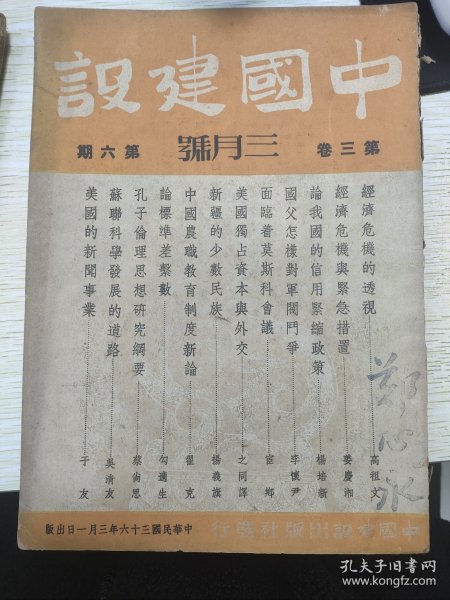 中國建設
第三卷 三月號 第六期
經濟危機的透視……高祖文
經濟危機與緊急措置……婁慶湘
論我國的信用緊縮政策……楊培新
國父怎樣對軍閥鬥爭……李懷尹
面臨着莫斯科會議……宦鄉
美國獨占資本與外交……之同譯
新疆的少數民族……楊義旗
中國農職教育制度新論……翟克
論標準差繫數……勾適生
孔子倫理思想研究綱要……蔡尙思
蘇聯科學發展的道路……吳清友
美國的新聞事業……于友
鄭心永
中國建設出版社發行
中華民國三十六年三月一日出版
孔夫子旧书网